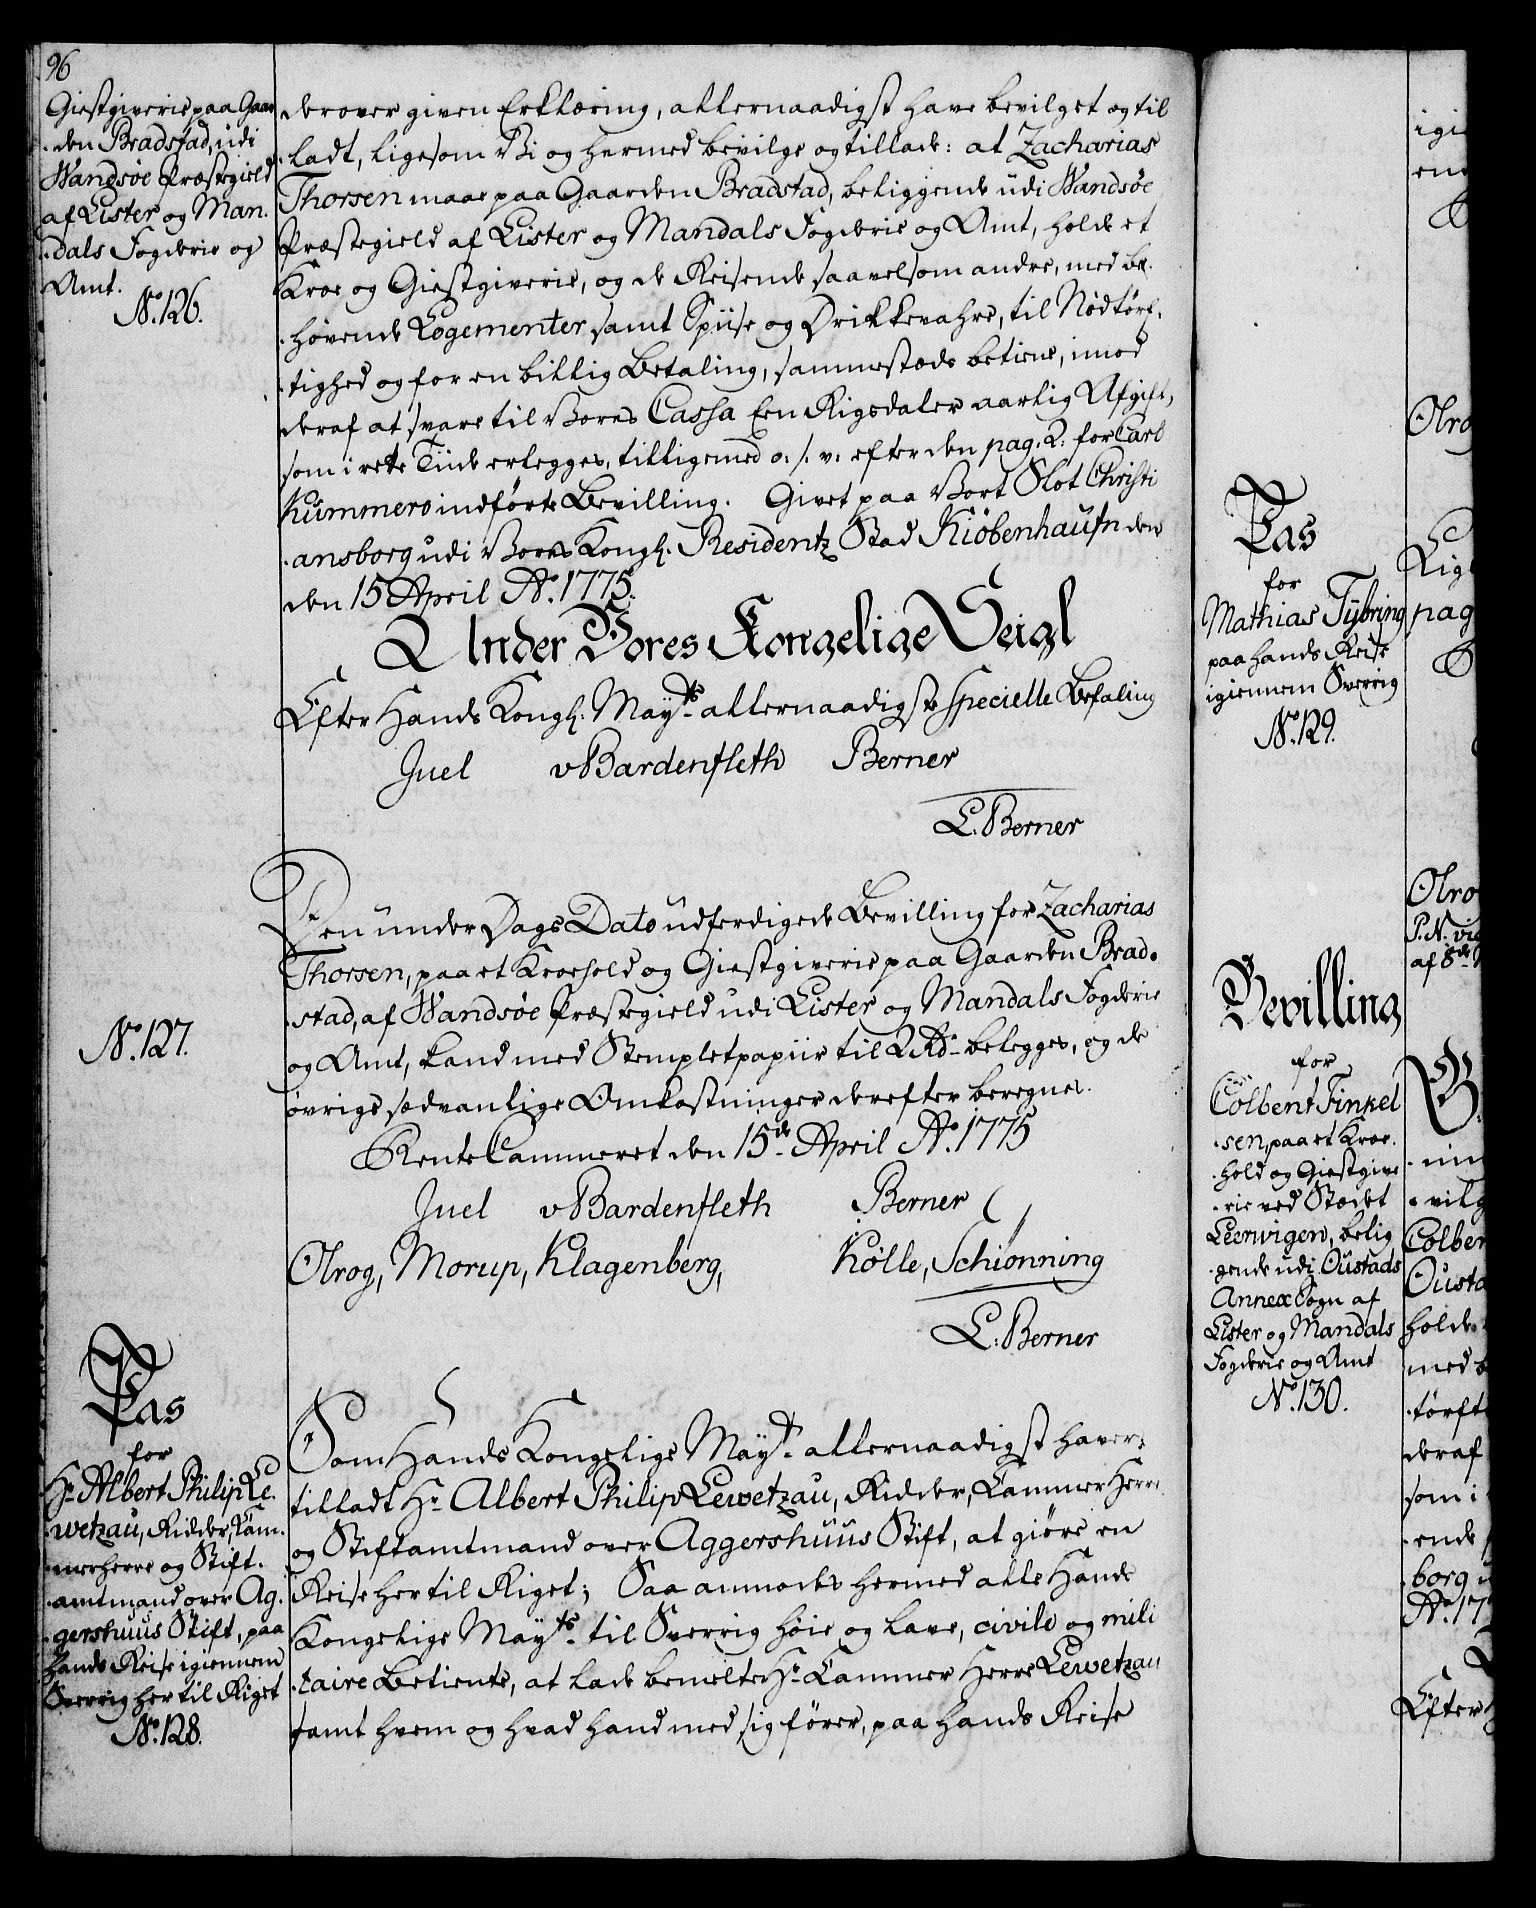 96
Giestgiverie paa Gaar
den Bradstad, udi
Wandsøe Præstegield
af Lister og Man-
dals Fogderie og
Amt.
No. 126.
derover given Erklæring, allernaadigst have bevilget og til
ladt, ligesom Vi og hermed bevilge og tillade: at Zacharias
Thorsen maae paa Gaarden Bradstad, beliggende udi Wandsøe
Præstegield af Lister og Mandals Fogderie og Amt, holde et
Kroe og Giestgiverie, og de Reisende saavelsom andre, med be-
høvende Logementer samt Spiise og Drikkevahre, til Nødtørf-
tighed og for en billig Betaling, sammestæds betiene, imod
deraf at svare til Vores Cassa Een Rigsdaler aarlig Afgift,
som i rette Tiide erlegges, tilligemed o. s. v. efter den pag. 2. for Carl
Kummers indførte Bevilling. Givet paa Vort Slot Christi
ansborg udi Vores Kongl. Residentz Stad Kiøbenhaufn den
den 15 April Ao. 1775.
Under Vores Kongelige Seigl
Efter Hands Kongl. Mayts. allernaadigste Specielle Befaling
Juel vBardenfleth Berner
L. Berner
No. 127.
Den under Dags Dato udferdigede Bevilling for Zacharias
Thorsen, paa et Kroehold og Giestgiverie paa Gaarden Brad-
stad, af Wandsøe Præstegield udi Lister og Mandals Fogderie
og Amt, kand med Stempletpapiir til 2 Rd. belegges, og de
øvrige sædvanlige Omkostninger derefter beregnes.
RenteCammeret den 15de April Ao. 1775
Juel vBardenfleth Berner
Olrog, Morup, Klagenberg, Kølle, Schiønning
L. Berner
Pas
for
Hr. Albert Philip Le-
wetzau, Ridder, Cam-
merherre og Stift-
amtmand over Ag-
gershuus Stift, paa
hands Reise igiennem
Sverrig her til Riget
No. 128.
Som Hands Kongelige Mayt. allernaadigst haver
tilladt Hr. Albert Philip Lewetzau, Ridder, CammerHerre
og Stiftamtmand over Aggershuus Stift, at giøre en
Reise her til Riget; Saa anmodes hermed alle Hands
Kongelige Mayts. til Sverrig høie og lave, civile og mili
taire Betiente, at lade bemelte Hr. Cammer Herre Lewetzau
samt hvem og hvad hand med sig fører, paa hands Reise
Pas
for
Mathias Tybring
paa hands Reise
igiennem Sverrig
No. 129.
Bevilling
for
Colbent Finkel
sen, paa et Kroe-
hold og Giestgive
rie ved Stædet
Leervigen, belig
gende udi Oustads
Annex Sogn af
Lister og Mandals
Fogderie og Amt
No. 130.
igi
end
Olro
Lig
pag
Olro
P. N. vid
af 8de
vilg
Colber
Ousta
holde
med b
tørft
deraf
som i
ende
borg u
Ao. 17
Efter